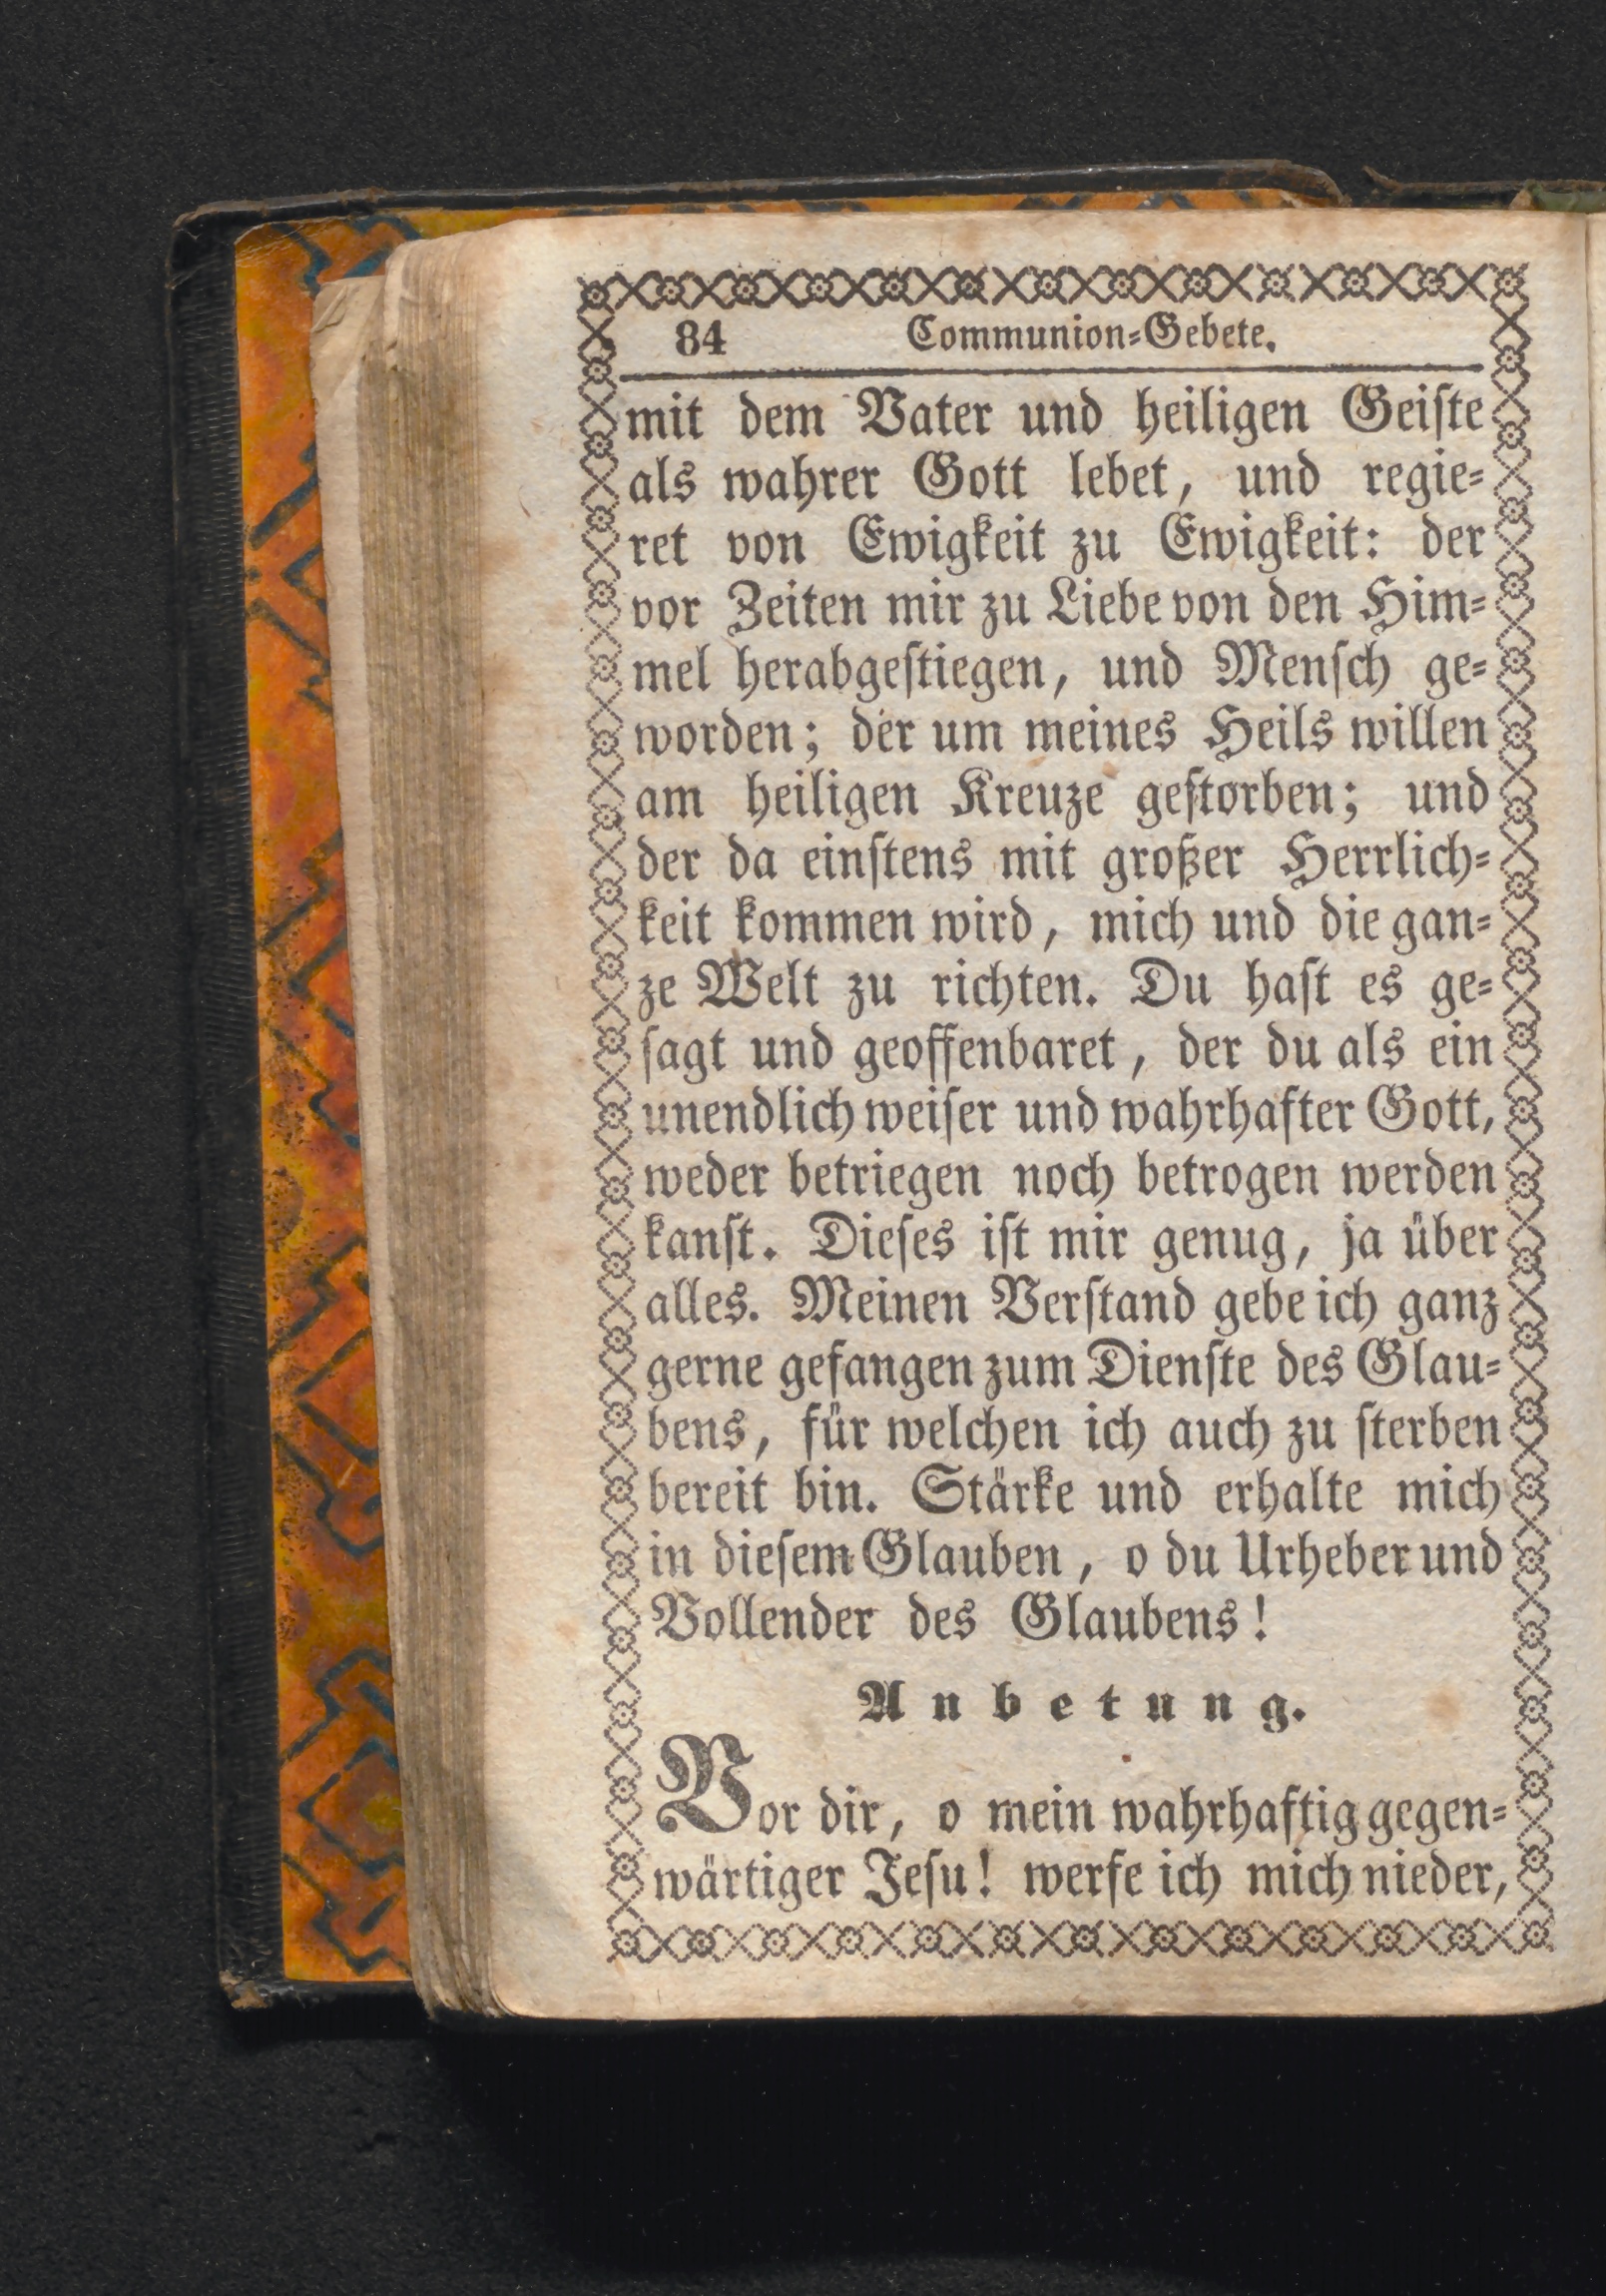 84 Communion-Gebete.
mit dem Vater und heiligen Geiste
als wahrer Gott lebet, und regie-
ret von Ewigkeit zu Ewigkeit: der
vor Zeiten mir zu Liebe von den Him-
mel herabgestiegen, und Mensch ge-
worden; der um meines Heils willen
am heiligen Kreuze gestorben; und
der da einstens mit großer Herrlich-
keit kommen wird, mich und die gan-
ze Welt zu richten. Du hast es ge-
sagt und geoffenbaret, der du als ein
unendlich weiser und wahrhafter Gott,
weder betriegen noch betrogen werden
kanst. Dieses ist mir genug, ja über
alles. Meinen Verstand gebe ich ganz
gerne gefangen zum Dienste des Glau-
bens, für welchen ich auch zu sterben
bereit bin. Stärke und erhalte mich
in diesem Glauben, o du Urheber und
Vollender des Glaubens!
Anbetung.
Vor dir, o mein wahrhaftig gegen-
wärtiger Jesu! werfe ich mich nieder,